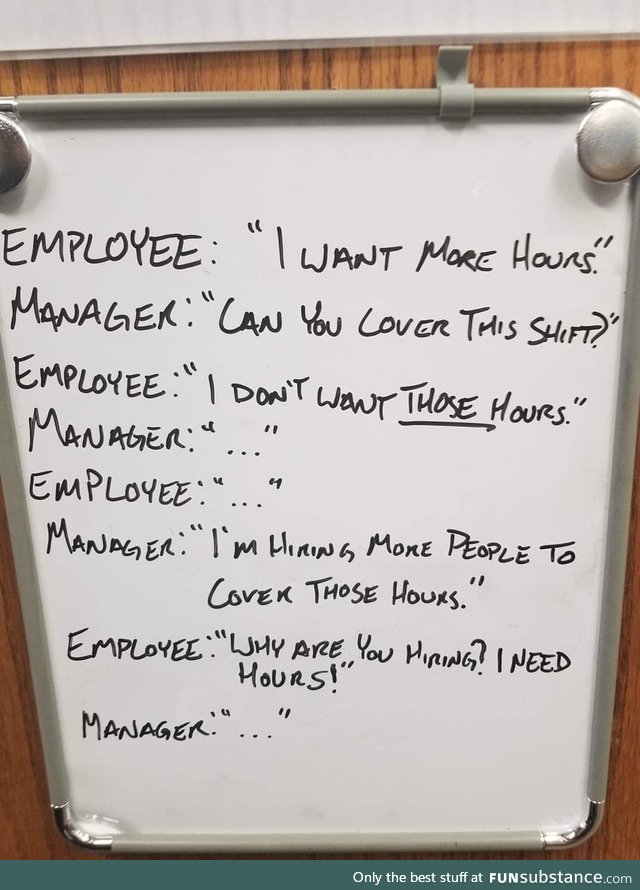 EMPLOYEE: "I WANT MORE HOURS."
MANAGER: "CAN YOU COVER THIS SHIFT?"
EMPLOYEE: "I DON'T WANT THOSE HOURS."
MANAGER: "..."
EMPLOYEE: "..."
MANAGER: "I'M HIRING MORE PEOPLE TO
COVER THOSE HOURS."
EMPLOYEE: "WHY ARE YOU HIRING? I NEED
HOURS!"
MANAGER: "..."
Only the best stuff at FUNsubstance.com